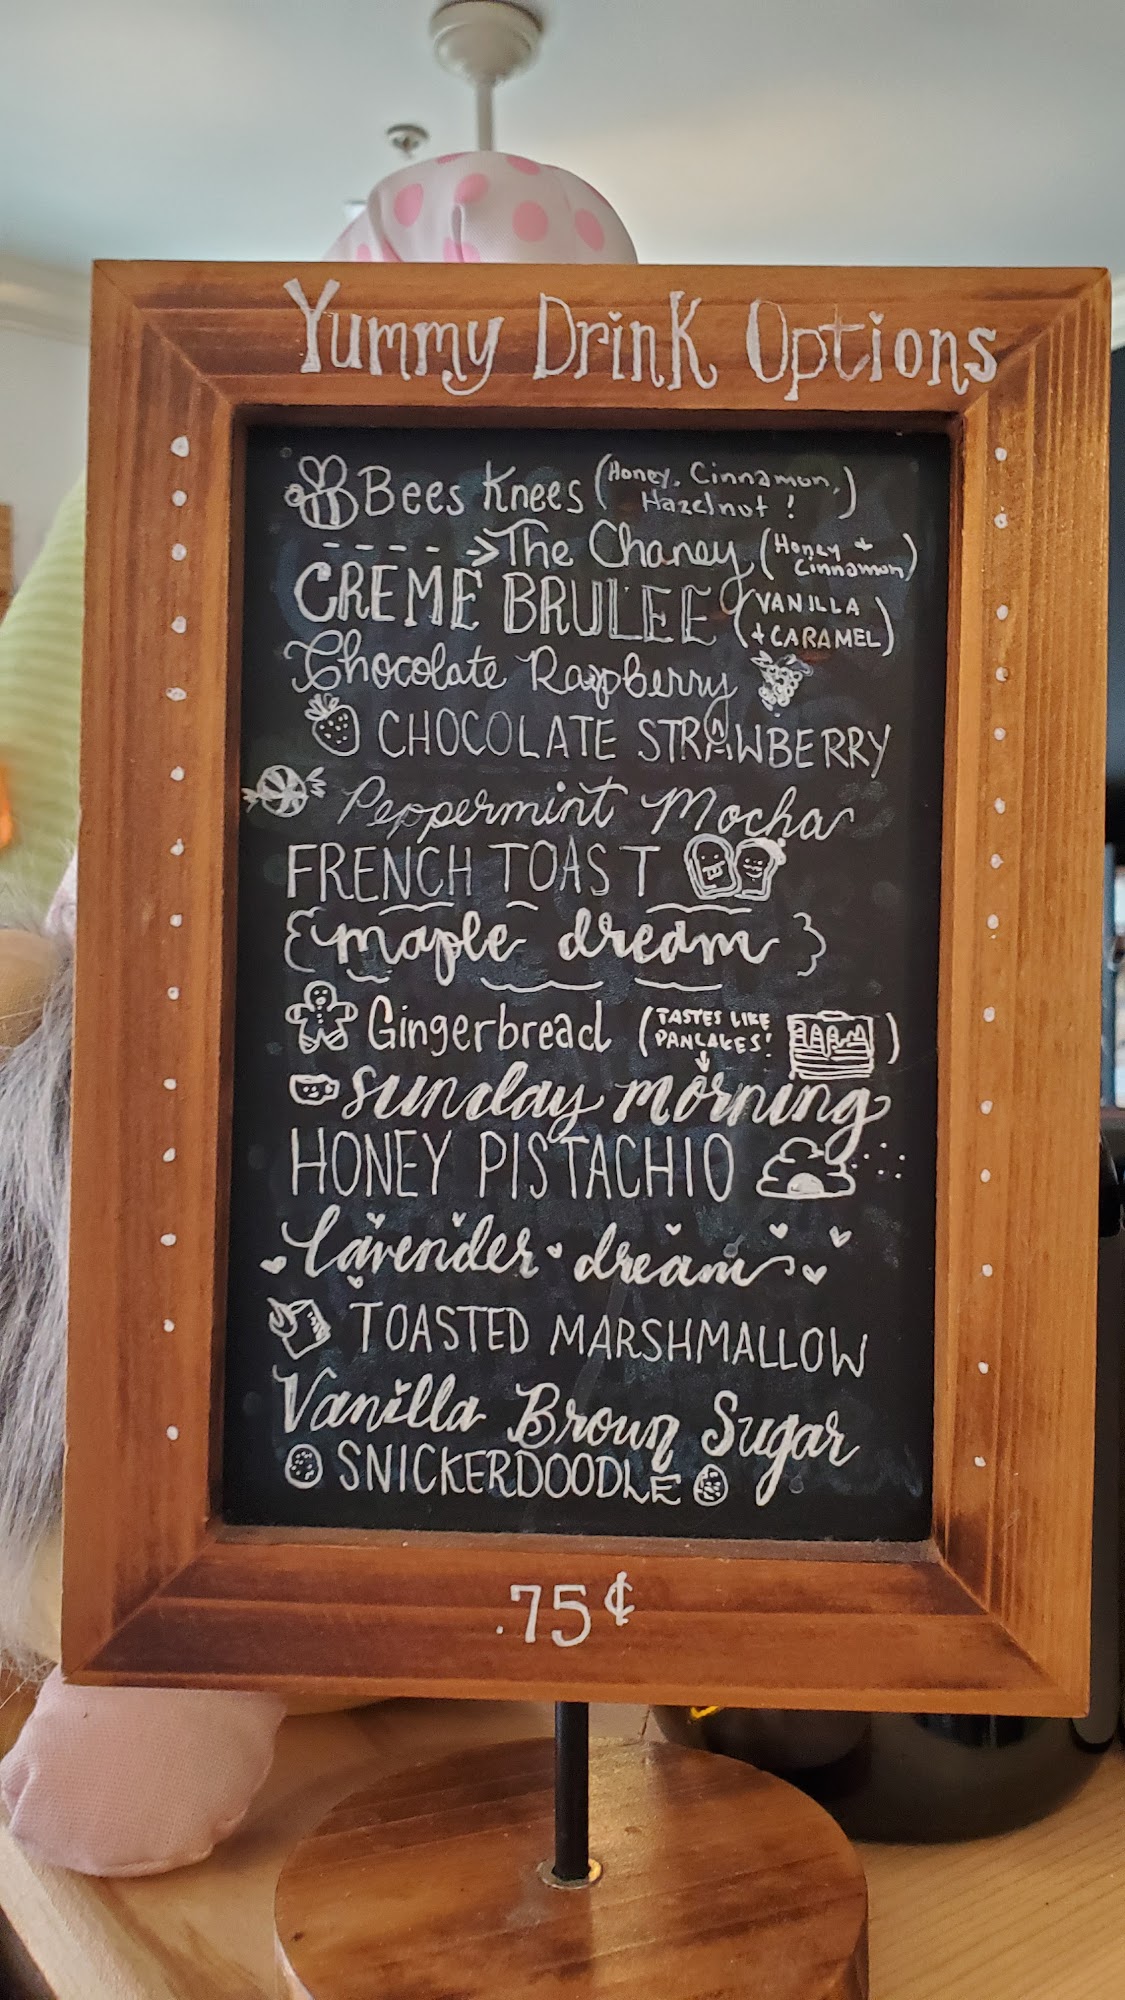 Yummy Drink Options
Bees Knees (Honey, Cinnamon,
Hazelnut!)
----->The Chaney (Honey +
Cinnamon)
CREME BRULEE (VANILLA
+ CARAMEL)
Chocolate Raspberry
CHOCOLATE STRAWBERRY
Peppermint Mocha
FRENCH TOAST
{maple dream}
Gingerbread (TASTES LIKE
PANCAKES!)
sunday morning
HONEY PISTACHIO
lavender dream
TOASTED MARSHMALLOW
Vanilla Brown Sugar
SNICKERDOODLE
.75¢